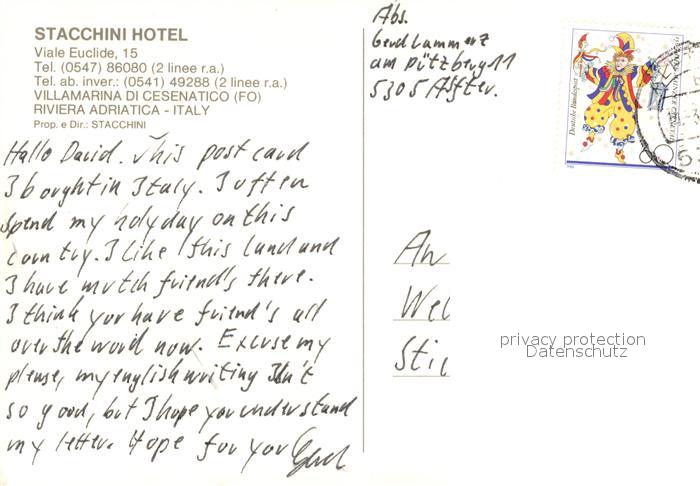 STACCHINI HOTEL
Viale Euclide, 15
Tel. (0547) 86080 (2 linee r.a.)
Tel. ab. inver.: (0541) 49288 (2 linee r.a.)
VILLAMARINA DI CESENATICO (FO)
RIVIERA ADRIATICA - ITALY
Prop. e Dir.: STACCHINI
Hallo David. This post card
I bought in Italy. I often
spend my holyday on this
country. I like this land and
I have mutch friend's there.
I think you have friend's all
over the world now. Excuse my
please, my english writing isn't
so good, but I hope you understand
my letter. Hope for you Gerd
Abs.
Gerd Lammerz
am pützberg 11
5305 Alfter.
Deutsche Bundespost
An
Wel
Sti
privacy protection
Datenschutz